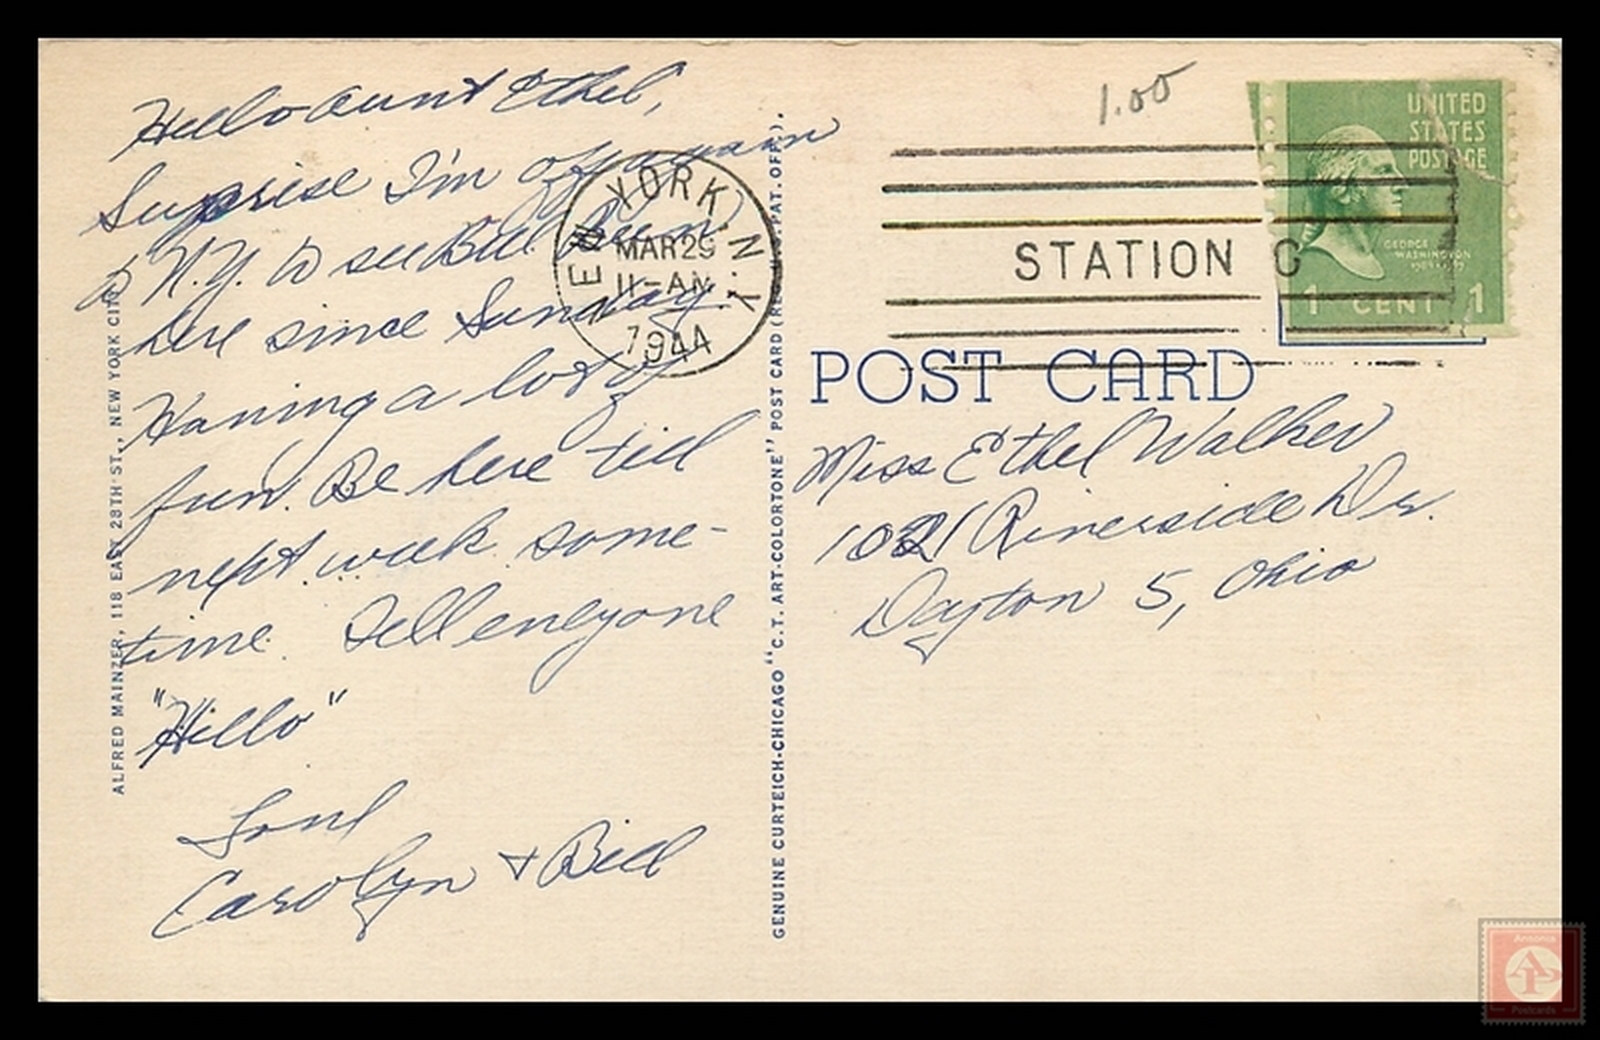 Hello Aunt Ethel,
Surprise I'm off again
to N.Y. to see Bill. Been
here since Sunday.
Having a lot of
fun. Be here till
next week some-
time. Tell everyone
"Hello"
Love
Carolyn + Bill
ALFRED MAINZER, 118 EAST 28TH ST., NEW YORK CITY
GENUINE CURTEICH-CHICAGO "C.T. ART-COLORTONE" POST CARD (REG. U.S. PAT. OFF.).
NEW YORK, N.Y.
MAR 29
11-AM
1944
1.00
STATION G
UNITED
STATES
POSTAGE
GEORGE
WASHINGTON
1 CENT 1
POST CARD
Miss Ethel Walker
1021 Riverside Dr.
Dayton 5, Ohio
AP
Postcards